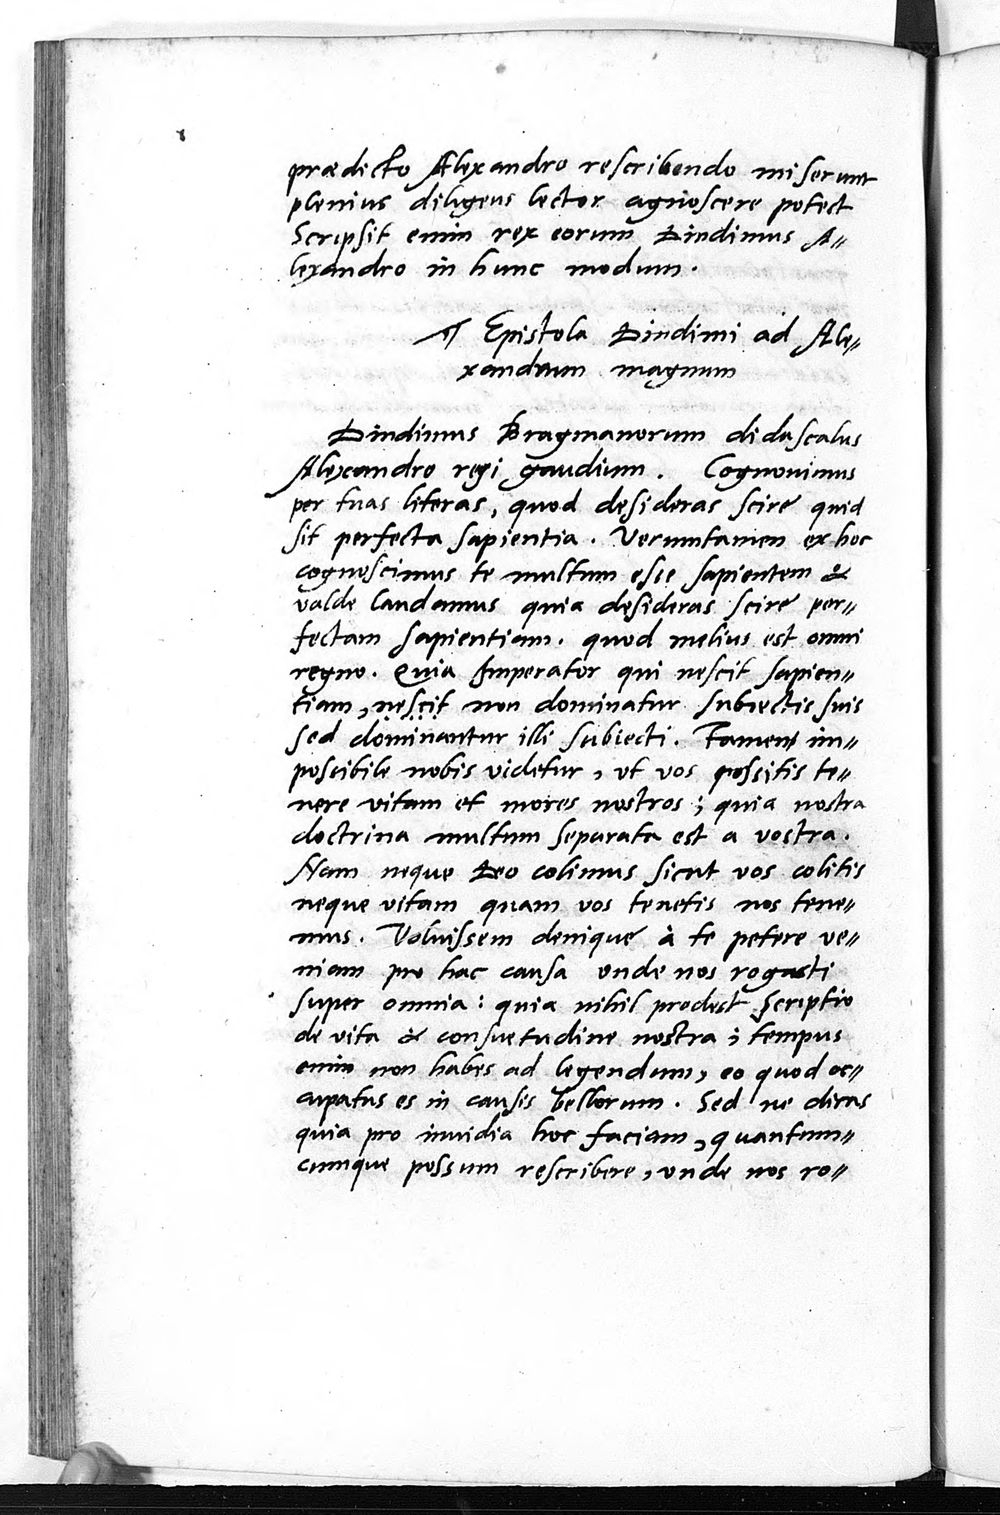 prædicto Alexandro rescribendo miserunt
plenius diligens lector agnoscere potest
Scripsit enim rex eorum Dindimus A〃
lexandro in hunc modum.
¶ Epistola Dindimi ad Ale〃
xandrum magnum
Dindimus Bragmanorum didascalus
Alexandro regi gaudium. Cognouimus
per tuas literas, quod desideras scire quid
sit perfecta sapientia. Veruntamen ex hoc
cognoscimus te multum esse sapientem &
valde laudamus quia desideras scire per〃
fectam sapientiam. quod melius est omni
regno. Quia Imperator qui nescit sapien〃
tiam, nescit non dominatur subiectis suis
sed dominantur illi subiecti. Tamen im〃
poscibile nobis videtur, vt vos possitis te〃
nere vitam et mores nostros; quia nostra
doctrina multum separata est a vostra.
Nam neque Deo colimus sicut vos colitis
neque vitam quam vos tenetis nos tene〃
mus. Voluissem denique à te petere ve〃
niam pro hac causa vnde nos rogasti
super omnia: quia nihil prodest Scriptio
de vita & consuetudine nostra; tempus
enim non habes ad legendum, eo quod oc〃
cupatus es in causis bellorum. Sed ne dicas
quia pro inuidia hoc faciam, quantum〃
cumque possum rescribere, vnde nos ro〃